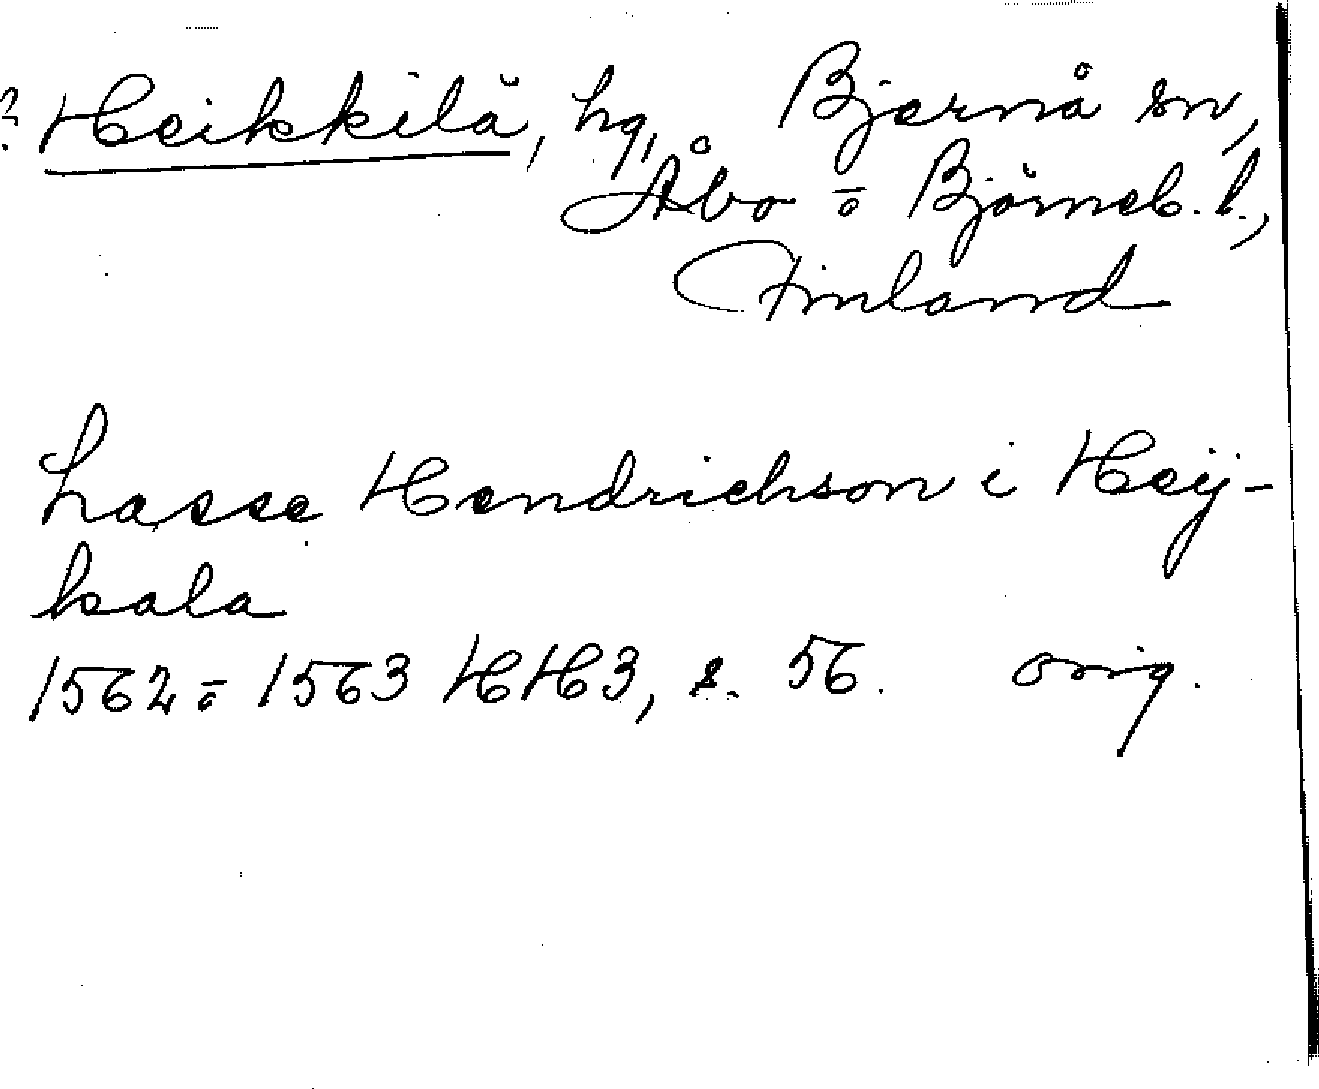 ? Heikkilä, hg, Bjärnå sn,
Åbo o Björneb. l.,
Finland
Lasse Hendrichson i Heij-
kala
1562 o 1563 HH3, s. 56. orig.